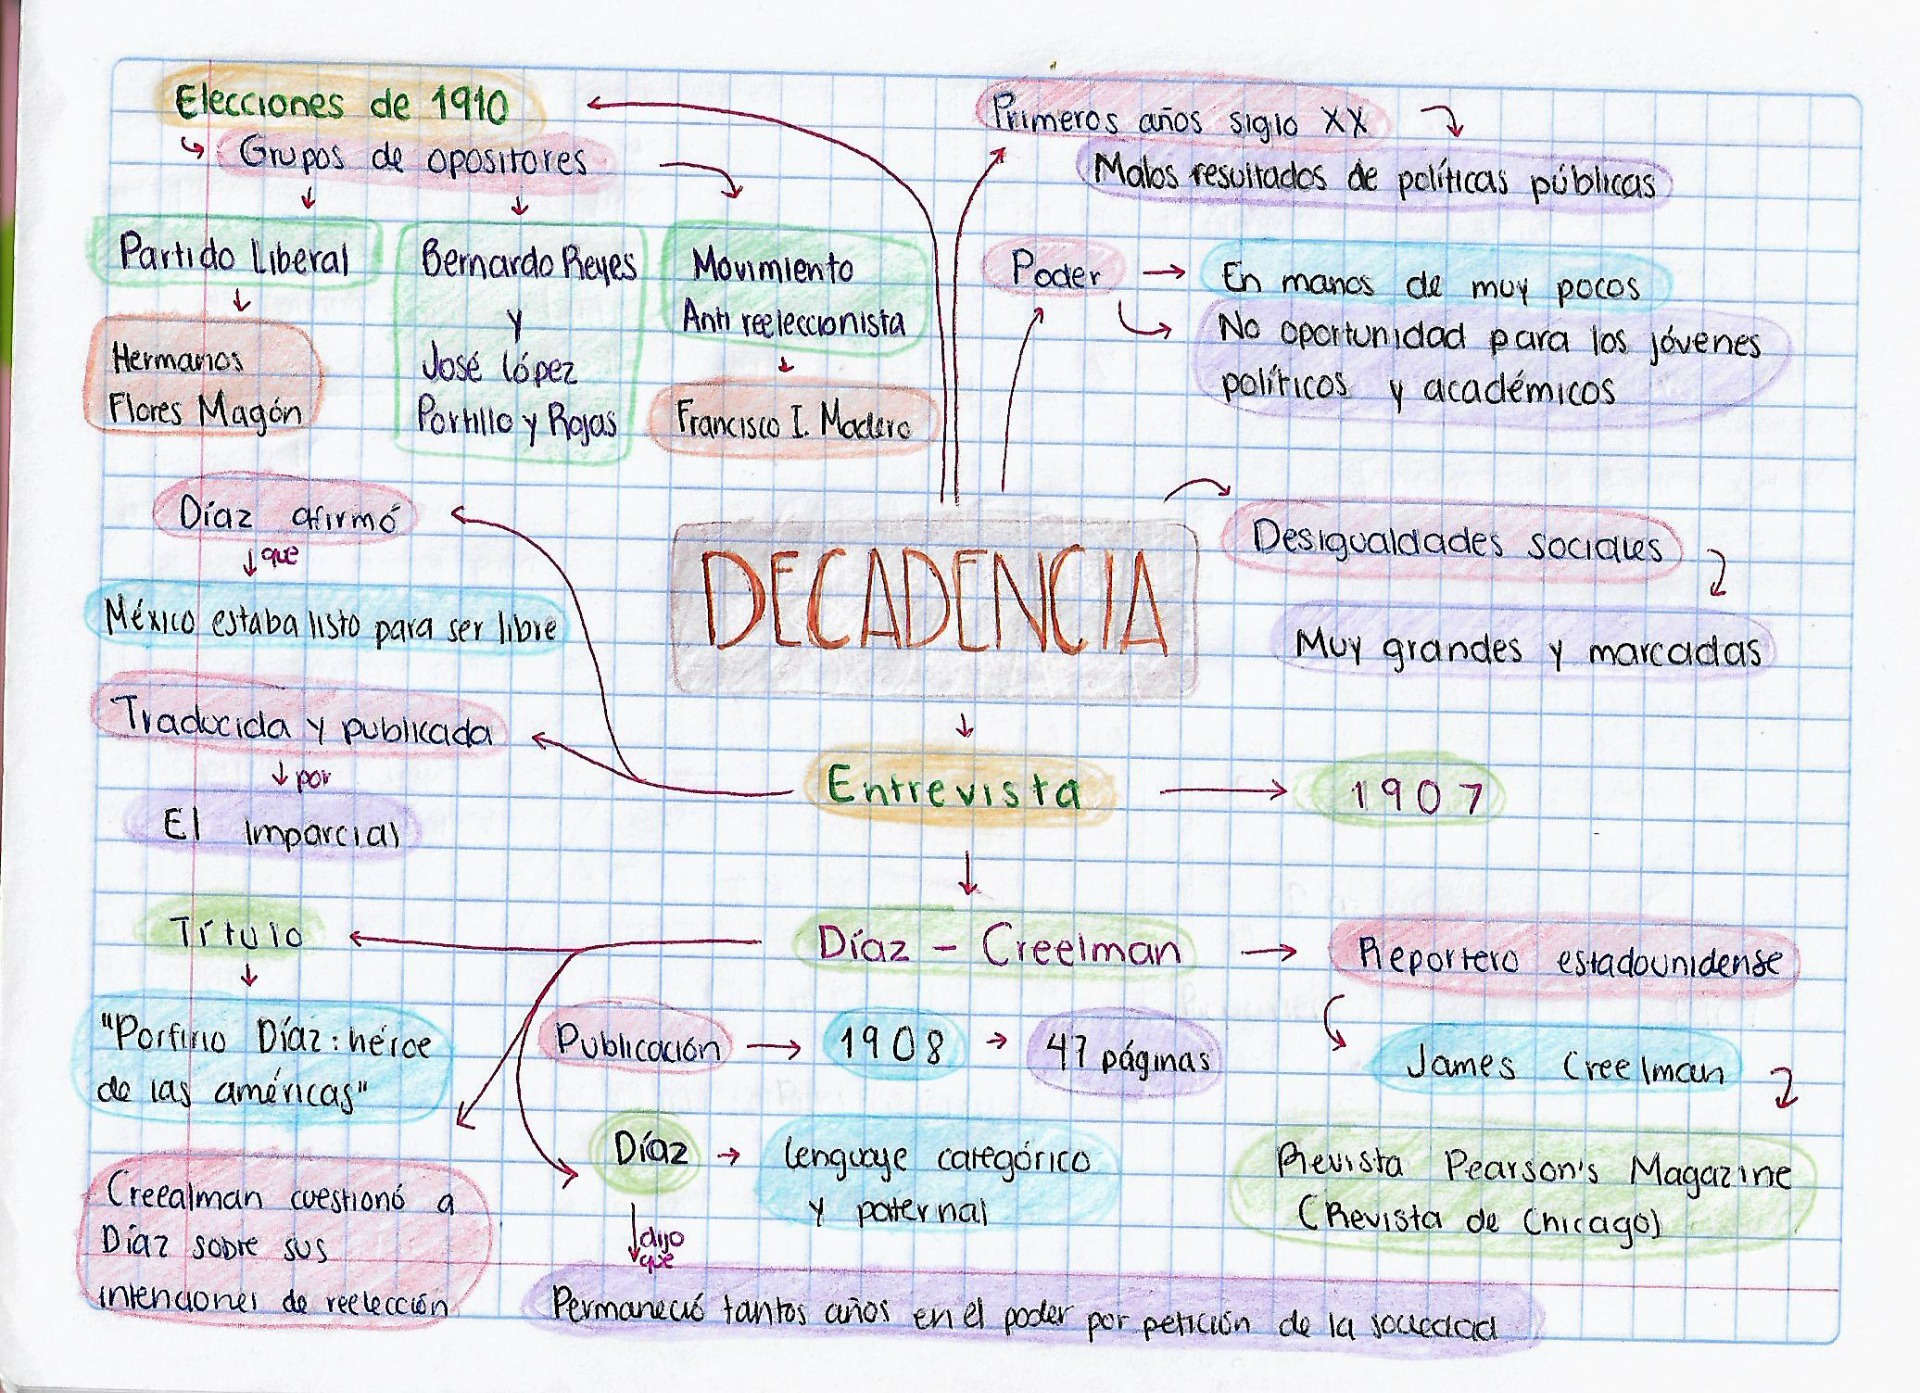 Elecciones de 1910
Grupos de opositores
Partido Liberal
Hermanos
Flores Magón
Bernardo Reyes
y
José López
Portillo y Rojas
Movimiento
Anti reeleccionista
Francisco I. Madero
Primeros años siglo XX
Malos resultados de políticas públicas
Poder
En manos de muy pocos
No oportunidad para los jóvenes
políticos y académicos
Díaz afirmó
que
México estaba listo para ser libre
DECADENCIA
Desigualdades sociales
Muy grandes y marcadas
Traducida y publicada
por
El Imparcial
Entrevista
1907
Título
"Porfirio Díaz: héroe
de las américas"
Díaz - Creelman
Reportero estadounidense
James Creelman
Revista Pearson's Magazine
(Revista de Chicago)
Publicación
1908
47 páginas
Díaz
lenguaje categórico
y paternal
dijo
que
Creealman cuestionó a
Díaz sobre sus
intenciones de reelección
Permaneció tantos años en el poder por petición de la sociedad